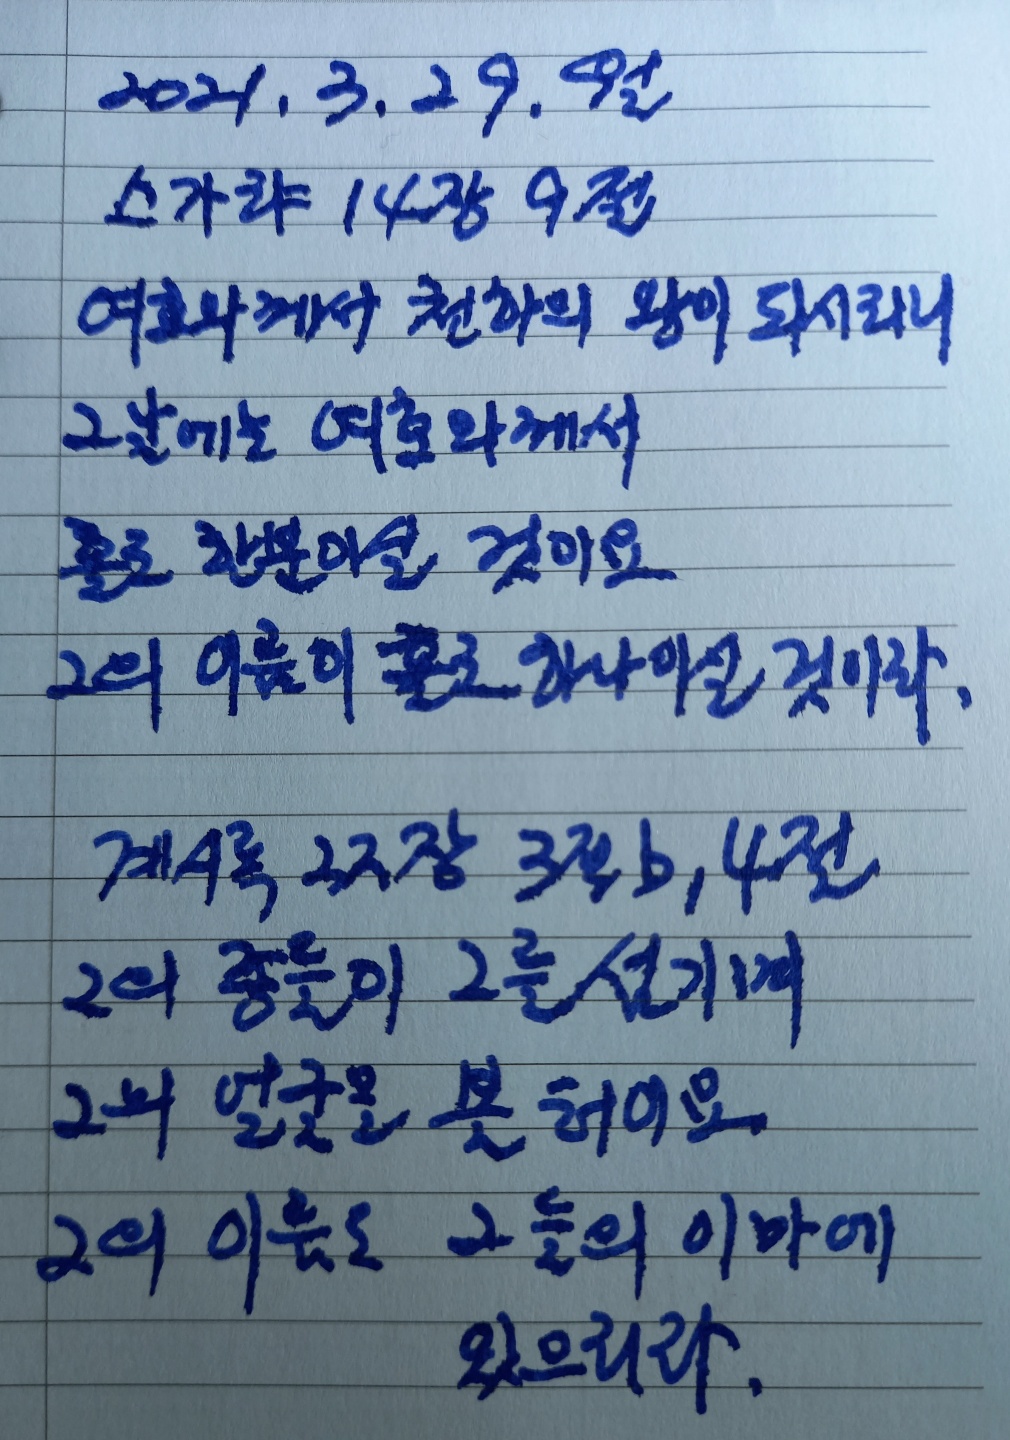 2021. 3. 29. 월
스가랴 14장 9절
여호와께서 천하의 왕이 되시리니
그날에는 여호와께서
홀로 한분이실 것이요
그의 이름이 홀로 하나이실 것이라.
계시록 22장 3절b, 4절
그의 종들이 그를 섬기며
그의 얼굴을 볼 터이요
그의 이름도 그들의 이마에
있으리라.